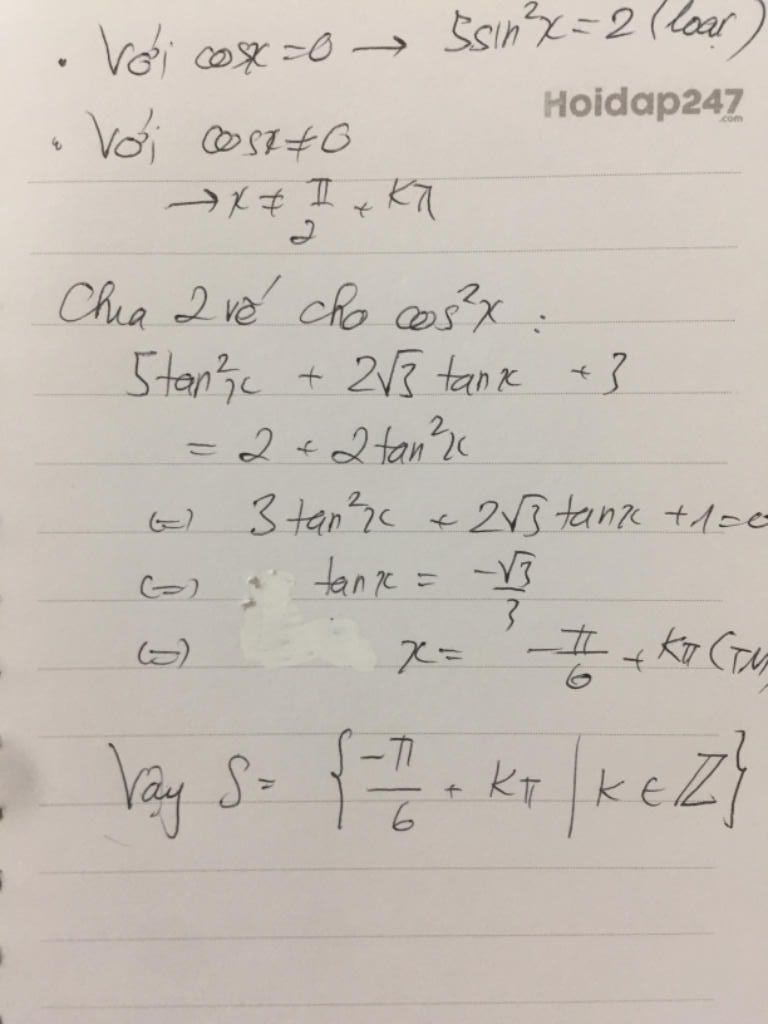 . Với cosx = 0 → 5sin²x = 2 (loại)
Hoidap247
.com
. Với cosx ≠ 0
→ x ≠ π/2 + kπ
Chia 2 vế cho cos²x :
5tan²x + 2√3 tanx + 3
= 2 + 2tan²x
(=) 3tan²x + 2√3 tanx + 1 = 0
(=) tanx = -√3/3
(=) x = -π/6 + kπ (TM
Vậy S = {-π/6 + kπ | k ∈ ℤ}